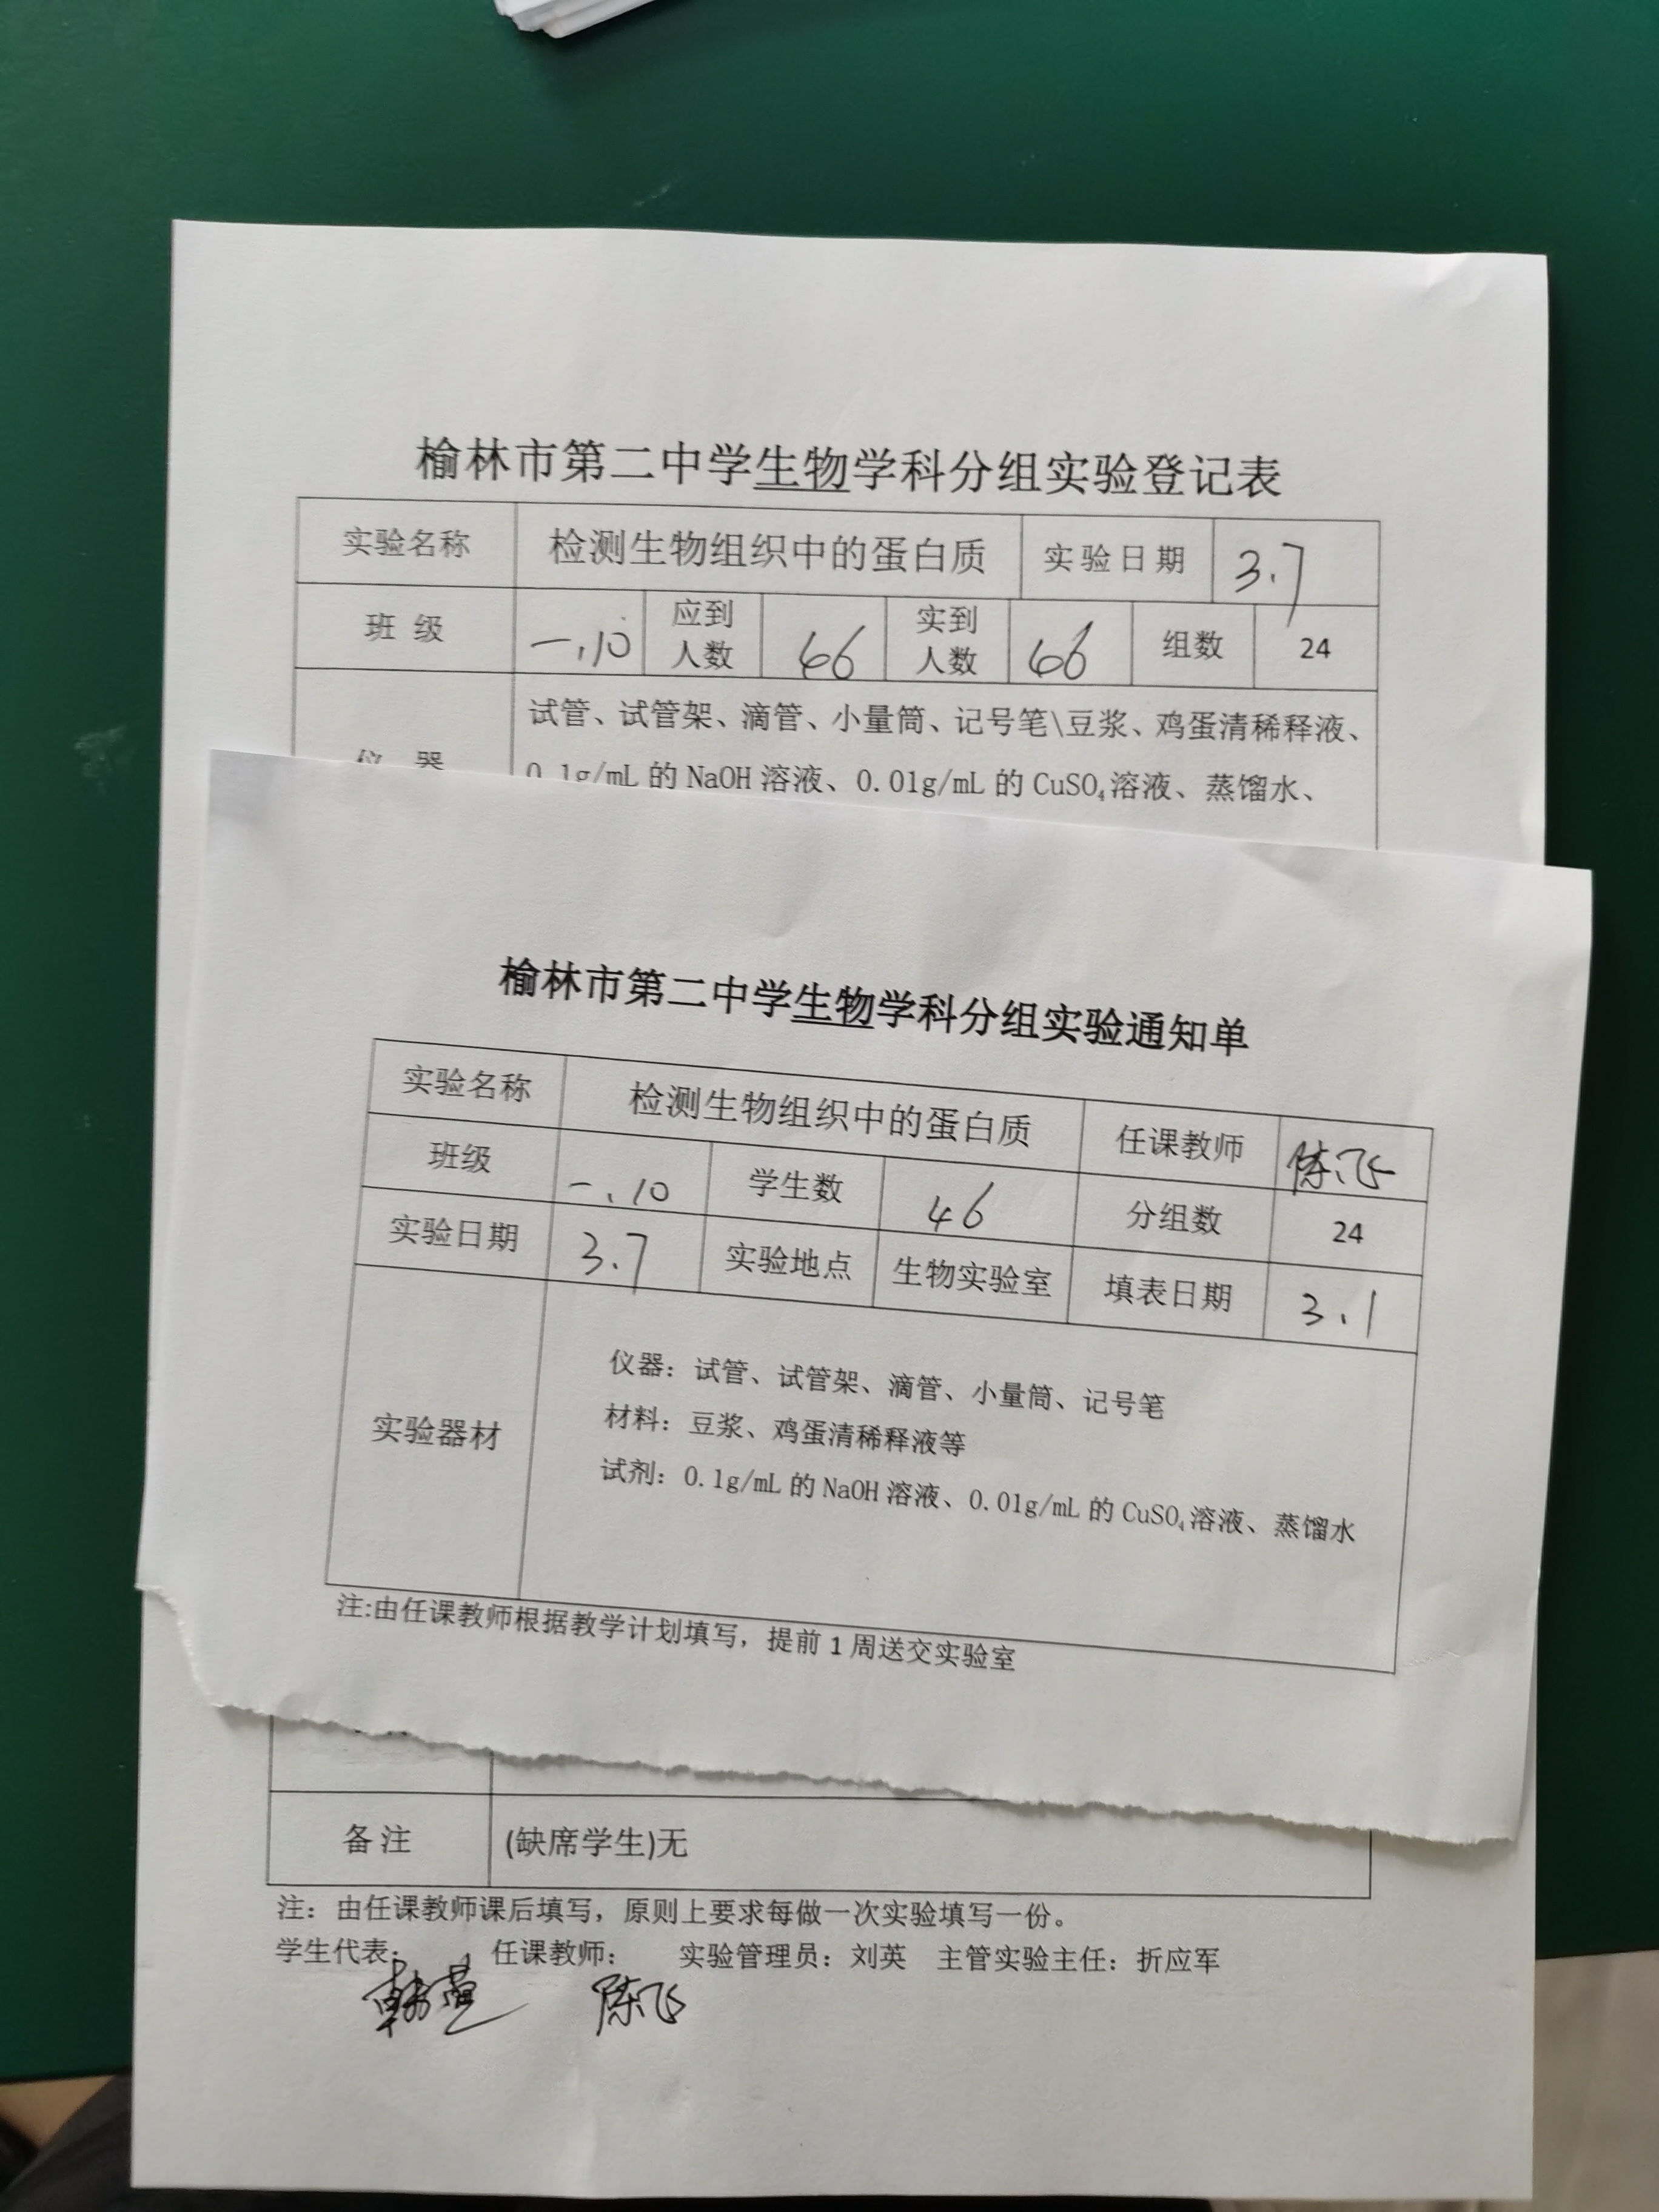 榆林市第二中学生物学科分组实验登记表
实验名称 检测生物组织中的蛋白质 实验日期 3.7
班 级 一.10 应到人数 66 实到人数 66 组数 24
试管、试管架、滴管、小量筒、记号笔\豆浆、鸡蛋清稀释液、
仪 器 0.1g/mL 的 NaOH 溶液、0.01g/mL 的 CuSO₄溶液、蒸馏水、
榆林市第二中学生物学科分组实验通知单
实验名称 检测生物组织中的蛋白质 任课教师 陈飞
班级 一.10 学生数 46 分组数 24
实验日期 3.7 实验地点 生物实验室 填表日期 3.1
实验器材
仪器：试管、试管架、滴管、小量筒、记号笔
材料：豆浆、鸡蛋清稀释液等
试剂：0.1g/mL 的 NaOH 溶液、0.01g/mL 的 CuSO₄溶液、蒸馏水
注:由任课教师根据教学计划填写，提前 1 周送交实验室
备注 (缺席学生)无
注：由任课教师课后填写，原则上要求每做一次实验填写一份。
学生代表： 任课教师： 实验管理员：刘英 主管实验主任：折应军
陈飞